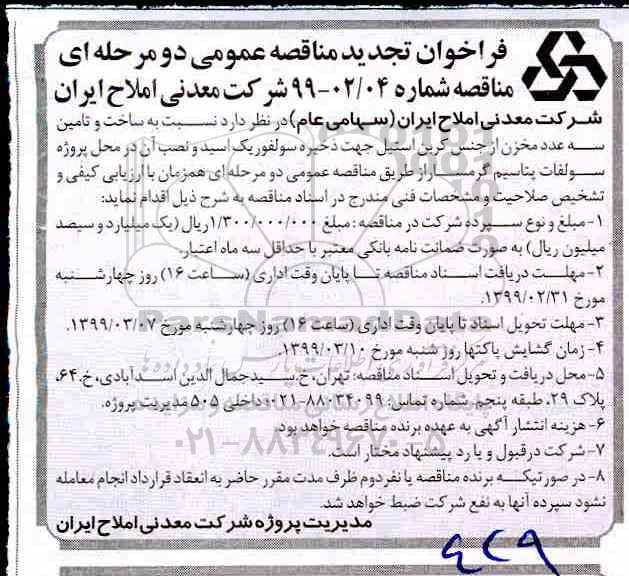 فراخوان تجدید مناقصه عمومی دو مرحله ای
مناقصه شماره ۹۹-۰۲/۰۴ شرکت معدنی املاح ایران
شرکت معدنی املاح ایران (سهامی عام) در نظر دارد نسبت به ساخت و تامین
سه عدد مخزن از جنس کربن استیل جهت ذخیره سولفوریک اسید و نصب آن در محل پروژه
سولفات پتاسیم گرمسار از طریق مناقصه عمومی دو مرحله ای همزمان با ارزیابی کیفی و
تشخیص صلاحیت و مشخصات فنی مندرج در اسناد مناقصه به شرح ذیل اقدام نماید:
۱- مبلغ و نوع سپرده شرکت در مناقصه: مبلغ ۱/۳۰۰/۰۰۰/۰۰۰ ریال (یک میلیارد و سیصد
میلیون ریال) به صورت ضمانت نامه بانکی معتبر با حداقل سه ماه اعتبار.
۲- مهلت دریافت اسناد مناقصه تا پایان وقت اداری (ساعت ۱۶) روز چهارشنبه
مورخ ۱۳۹۹/۰۲/۳۱.
۳- مهلت تحویل اسناد تا پایان وقت اداری (ساعت ۱۶) روز چهارشنبه مورخ ۱۳۹۹/۰۳/۰۷.
۴- زمان گشایش پاکتها روز شنبه مورخ ۱۳۹۹/۰۳/۱۰.
۵- محل دریافت و تحویل اسناد مناقصه: تهران، خ. سیدجمال الدین اسدآبادی، خ. ۶۴،
پلاک ۲۹، طبقه پنجم. شماره تماس: ۸۸۰۳۴۰۹۹-۰۲۱ داخلی ۵۰۵ مدیریت پروژه.
۶- هزینه انتشار آگهی به عهده برنده مناقصه خواهد بود.
۷- شرکت در قبول و یا رد پیشنهاد مختار است.
۸- در صورتیکه برنده مناقصه یا نفر دوم ظرف مدت مقرر حاضر به انعقاد قرارداد انجام معامله
نشود سپرده آنها به نفع شرکت ضبط خواهد شد.
مدیریت پروژه شرکت معدنی املاح ایران
ParsNamadData
۰۲۱-۸۸۳۴۹۶۷۰-۵